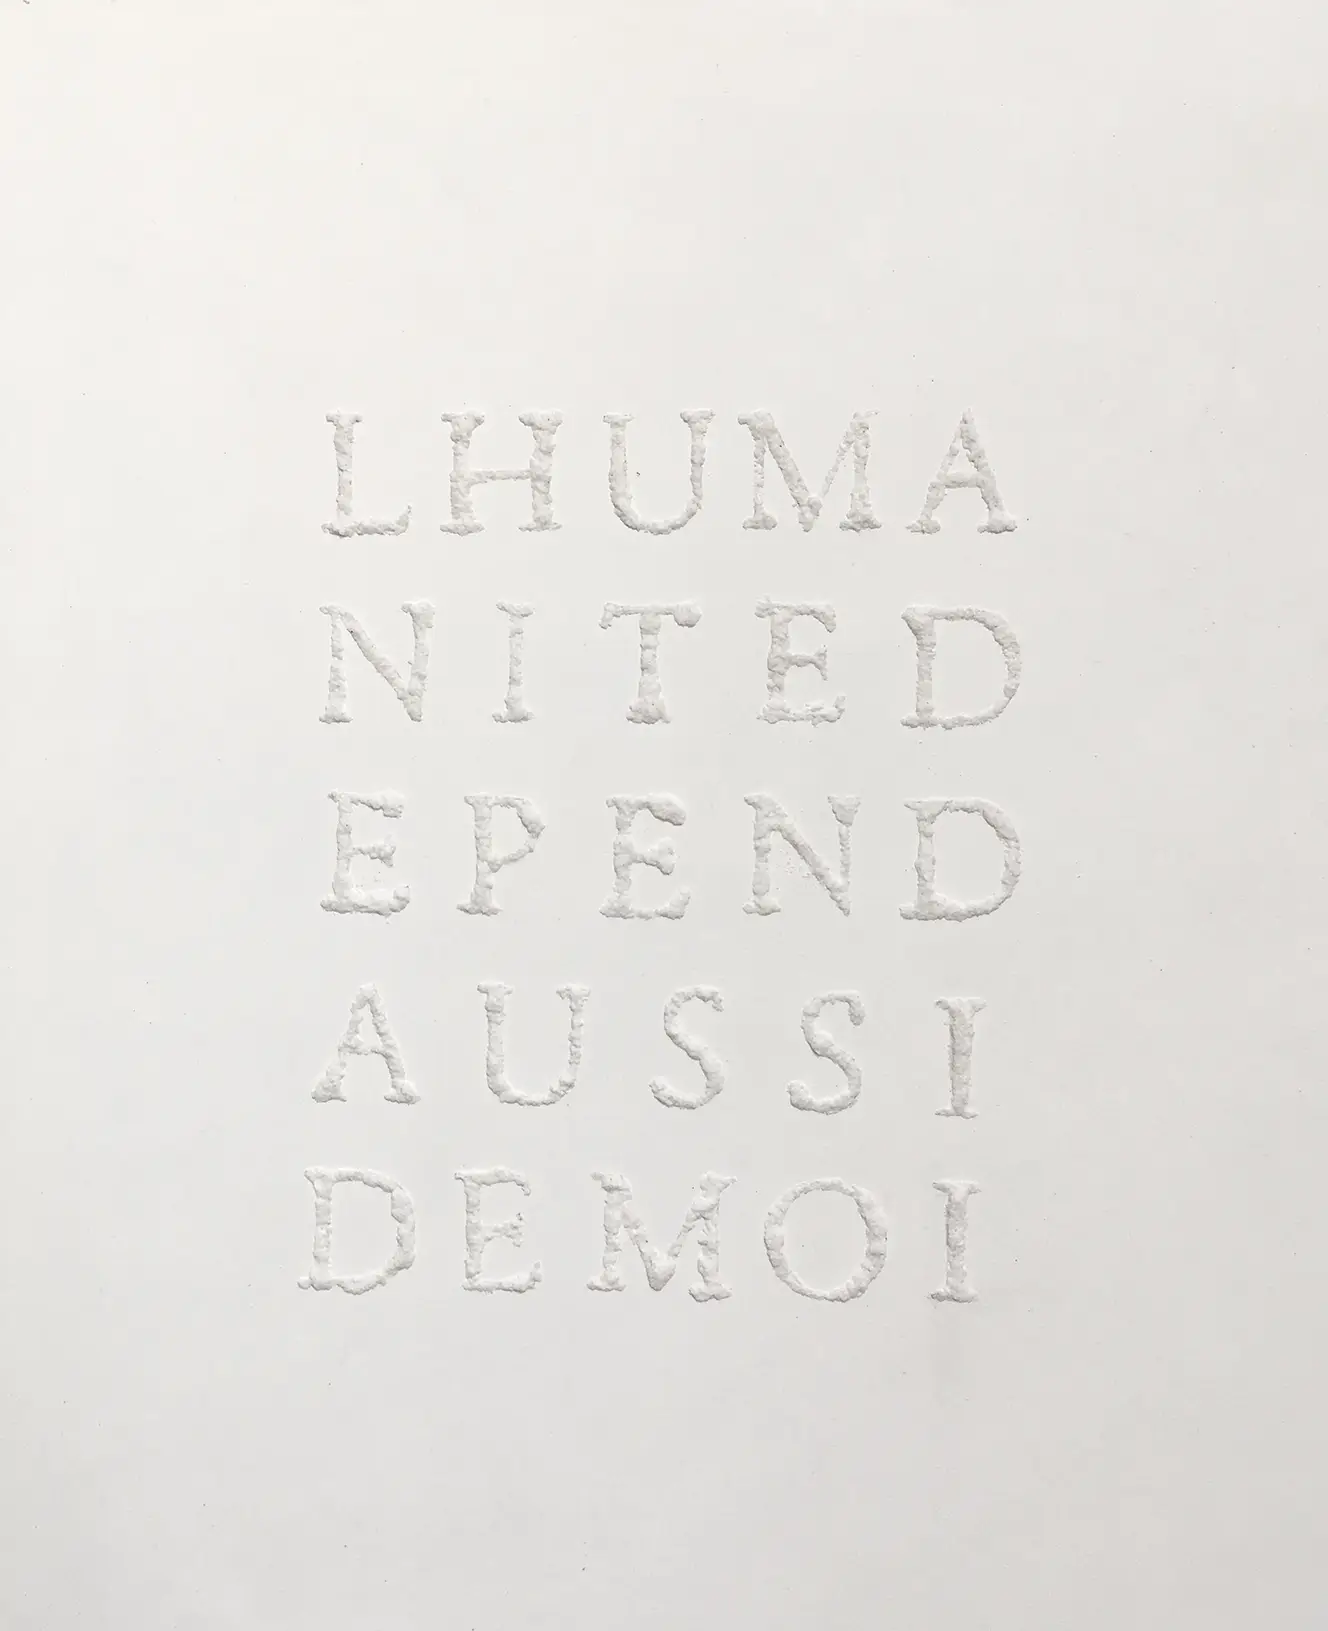 LHUMA
NITED
EPEND
AUSSI
DEMOI